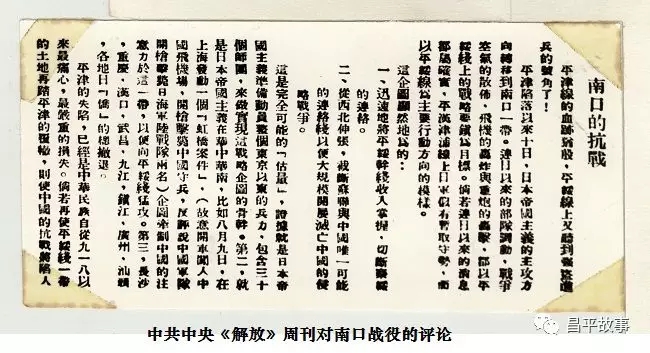 南口的抗戰
平津線的血跡猶殷，平綏線上又聽到強盜進
兵的號角了！
平津陷落以來十日，日本帝國主義的主攻方
向轉移到南口一帶。連日以來的部隊調動，戰爭
空氣的散佈，飛機的轟炸與重炮的轟擊，都以平
綏綫上的戰略要鎮為目標。倘若連日以來的消息
都屬確實，平漢津浦線上日軍似有暫取守勢，而
以平綏線為主要行動方向的模樣。
這企圖顯然地為的：
一、迅速地將平綏幹綫收入掌握，切斷察綏
的連絡。
二、從西北伸張，截斷蘇聯與中國唯一可能
的連絡綫以便大規模開展滅亡中國的侵
略戰爭。
這是完全可能的「估量」，證據就是日本帝
國主義準備動員整個東京以東的兵力，包含三十
個師團，來做實現這戰略企圖的骨幹。第二，就
是日本帝國主義在華中華南，比如八月九日，在
上海發動一個「虹橋案件」，（故意開車闖入中
國飛機場，開槍擊斃中國守兵，反誣說中國軍隊
開槍擊斃日海軍陸戰隊兩名）企圖牽制中國的注
意力於這一帶，以便向平綏綫猛攻。第三，長沙
，重慶，漢口，武昌，九江，鎮江，廣州，汕頭
，各地日「僑」的總撤退。
平津的失陷，已經是中華民族自從九一八以
來最痛心，最嚴重的損失。倘若再使平綏綫一帶
的土地再踏平津的覆轍，則使中國的抗戰將陷入
中共中央《解放》周刊对南口战役的评论
昌平故事